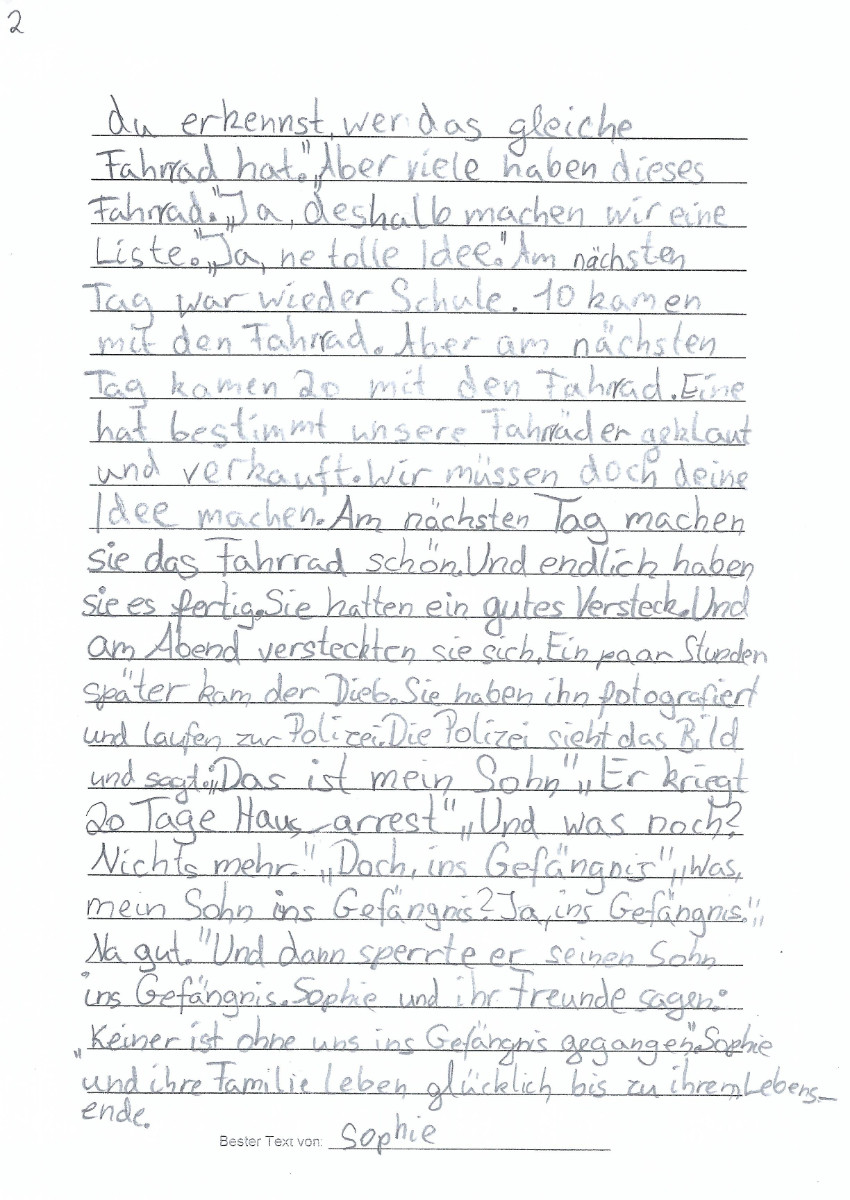 2
du erkennst, wer das gleiche
Fahrrad hat."„Aber viele haben dieses
Fahrrad."„Ja, deshalb machen wir eine
Liste."„Ja, ne tolle Idee." Am nächsten
Tag war wieder Schule. 10 kamen
mit den Fahrrad. Aber am nächsten
Tag kamen 20 mit den Fahrrad. Eine
hat bestimmt unsere Fahrräder geklaut
und verkauft. Wir müssen doch deine
Idee machen. Am nächsten Tag machen
sie das Fahrrad schön. Und endlich haben
sie es fertig. Sie hatten ein gutes Versteck. Und
am Abend versteckten sie sich. Ein paar Stunden
später kam der Dieb. Sie haben ihn fotografiert
und laufen zur Polizei. Die Polizei sieht das Bild
und sagt: „Das ist mein Sohn"„Er kriegt
20 Tage Haus arrest"„Und was noch?
Nichts mehr."„Doch, ins Gefängnis"„Was,
mein Sohn ins Gefängnis? Ja, ins Gefängnis."„
Na gut." Und dann sperrte er seinen Sohn
ins Gefängnis. Sophie und ihr Freunde sagen:
„Keiner ist ohne uns ins Gefängnis gegangen". Sophie
und ihre Familie leben glücklich bis zu ihrem Lebens-
ende.
Bester Text von: Sophie